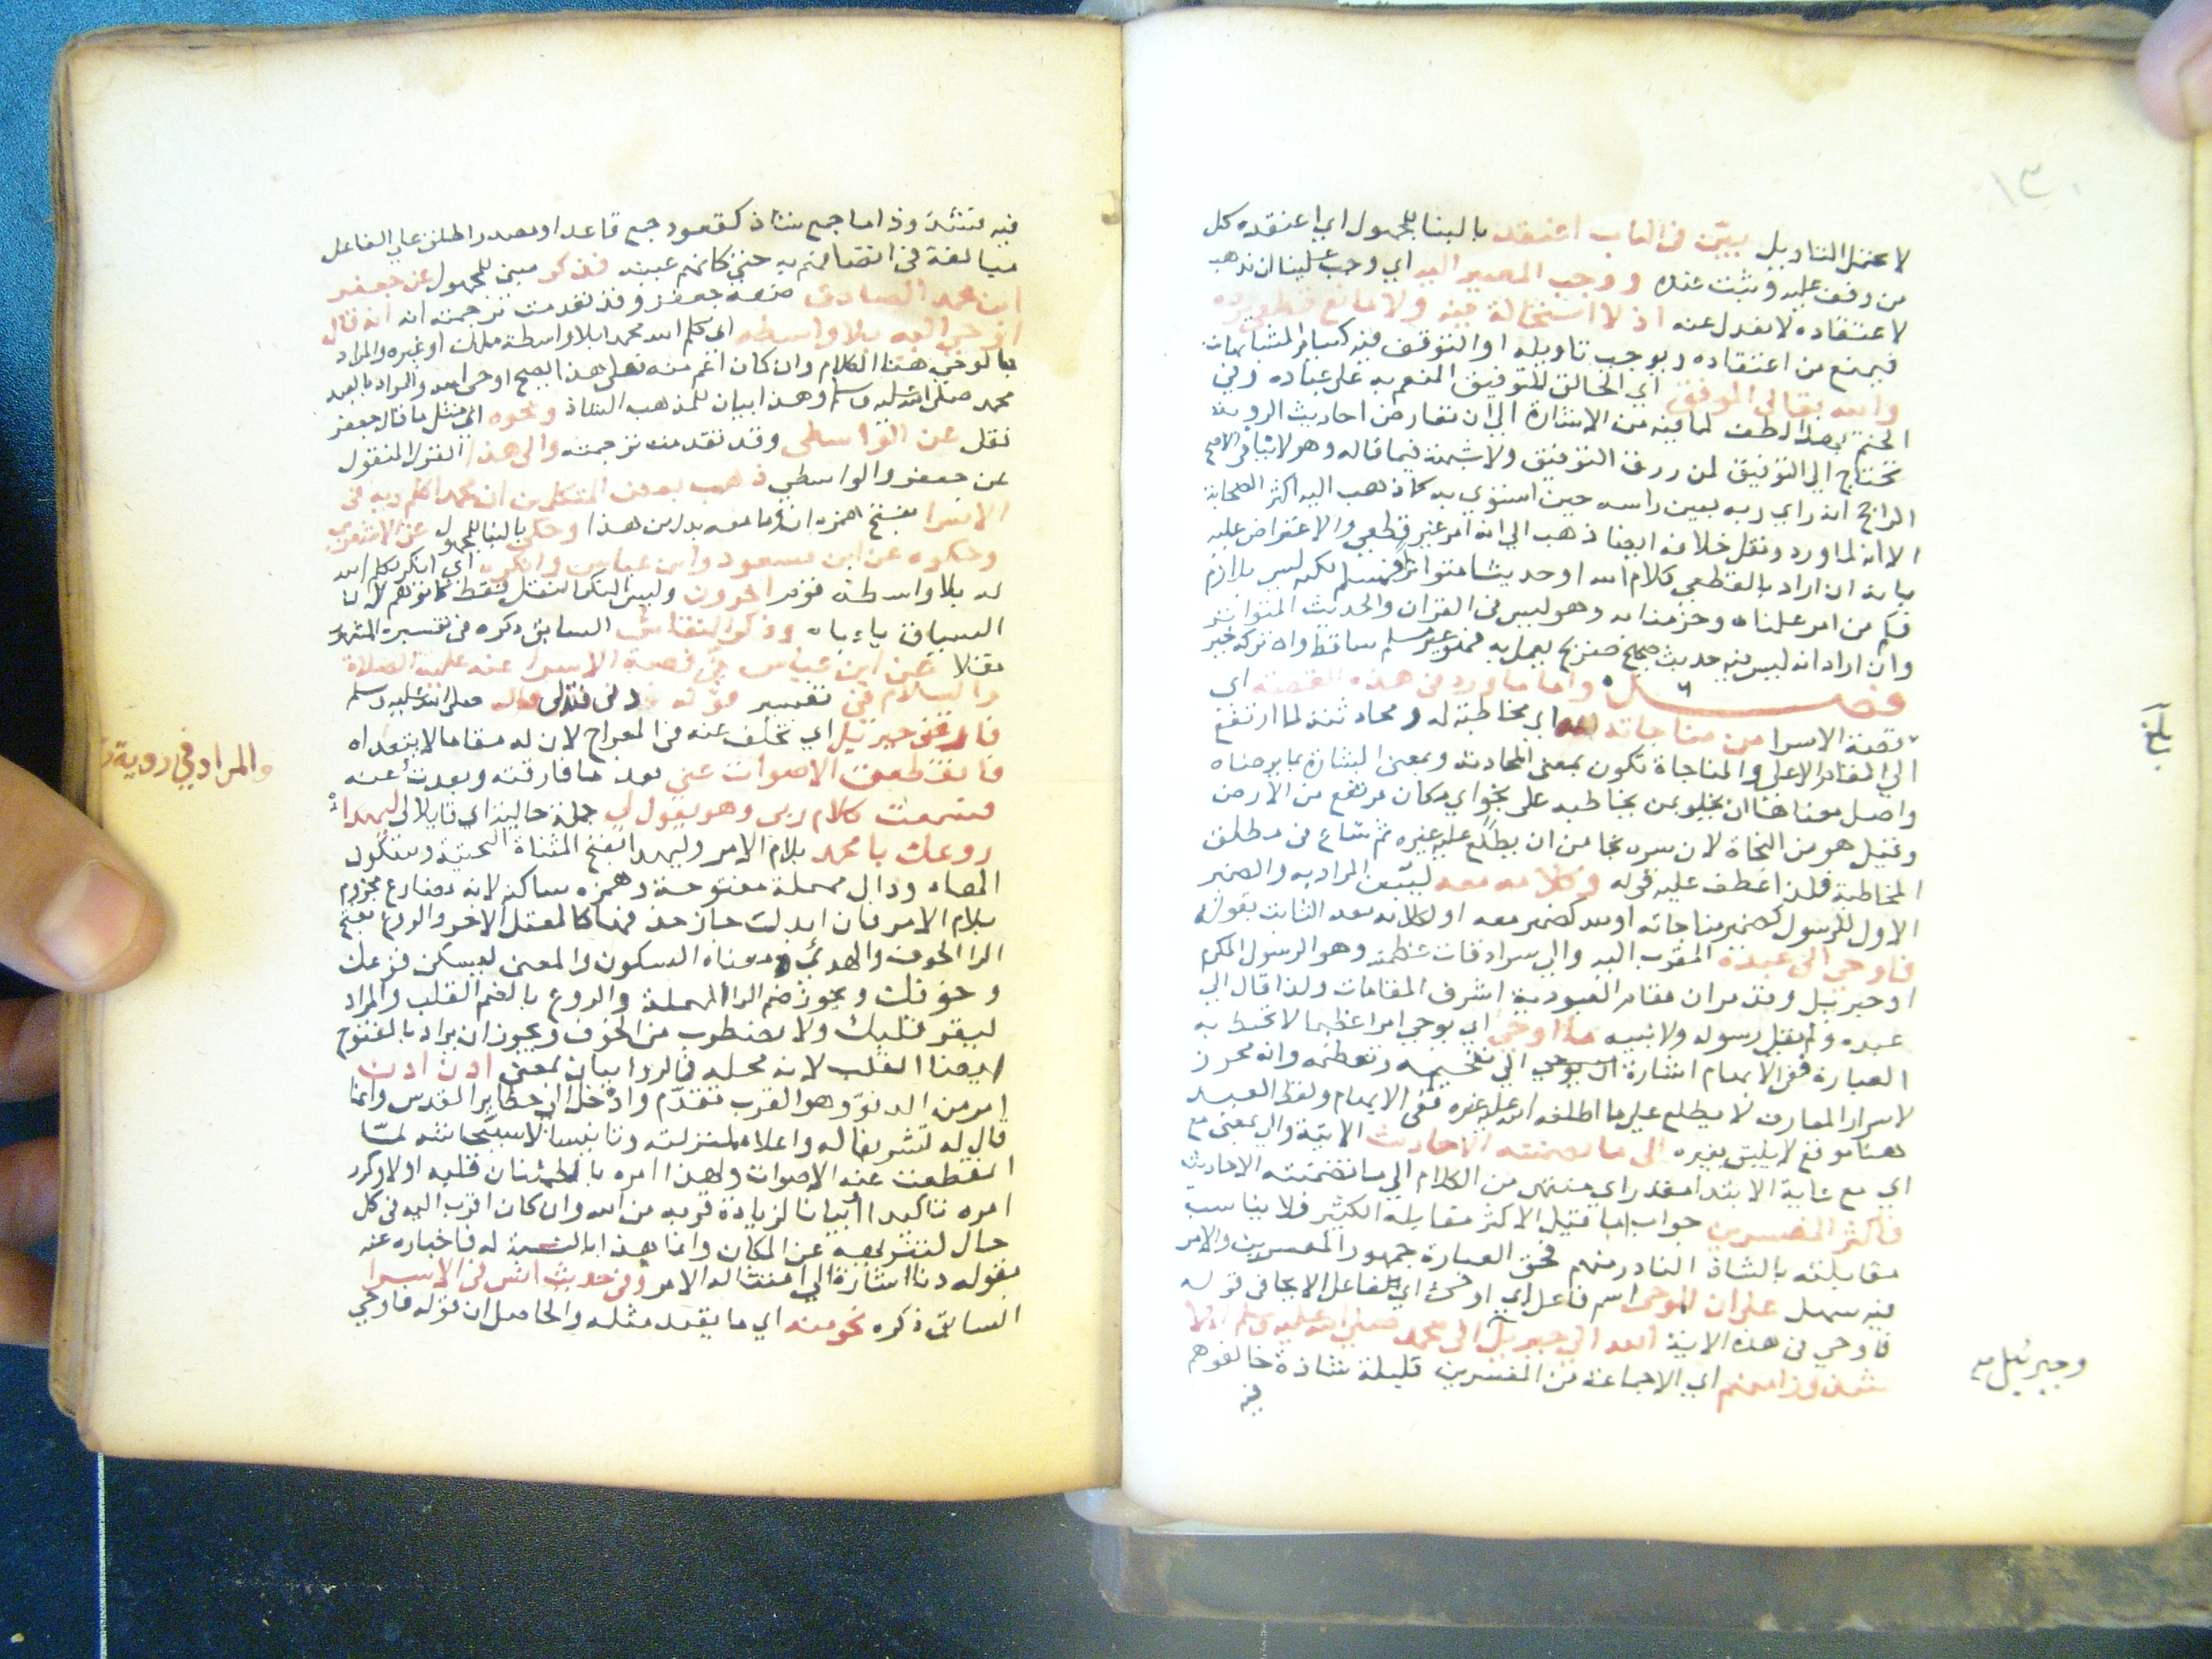 ١٣٠
لا يحتمل التاويل بيّن في الباب اعتقد بالبنا للمجهول اي اعتقده كل
من وقف عليه وثبت عنده ووجب المصير اليه اي وجب علينا ان نذهب
لاعتقاده لا نعدل عنه اذ لا استحالة فيه ولا مانع قطعي يرده
فيمنع من اعتقاده ويوجب تاويله او التوقف فيه كساير المتشابهات
والله تعالى الموفق اي الخالق للتوفيق المنعم به على عباده وفي
الختم بهذا لطف لما فيه من الاشارة الى ان تعارض احاديث الروية
تحتاج الى التوفيق لمن رزق التوفيق ولا شبهة فيما قاله وهو لا ينافي الاصح
الراجح انه راي ربه بعين راسه حين اسري به كما ذهب اليه اكثر الصحابة
الا انه لما ورد ونقل خلافه ايضا ذهب الى انه امر غير قطعي والاعتراض عليه
بانه ان اراد بالقطعي كلام الله او حديثا متواترا فمسلم لكنه ليس بلازم
فكم من امر علمناه وجزمنا به وهو ليس في القران والحديث المتواتر
وان اراد انه ليس فيه حديث صحيح صريح يعمل به فممنوع غير مسلم ساقط واه تركه خير
فصل واما ما ورد في هذه القصة اي
قصة الاسرا من مناجاته لله اي مخاطبته له ومحادثته لما ارتفع
الى المقام الاعلى والمناجاة تكون بمعنى المحادثة وبمعنى البشارة بما يرضاه
واصل معناها ان يخلو بمن يخاطبه على نجو اي مكان مرتفع من الارض
وقيل هو من النجاة لان سره نجا من ان يطلع عليه غيره ثم شاع في مطلق
المخاطبة فلذا عطف عليه قوله وكلامه معه ليبين المراد به والضمير
الاول للرسول كضمير مناجاته او لله كضمير معه او كلامه معه الثابت بقوله
فاوحى الى عبده المقرب اليه والى سرادقات عظمته وهو الرسول المكرم
او جبريل وقد مر ان مقام العبودية اشرف المقامات ولذا قال الى
عبده ولم يقل رسوله ولا نبيه ما اوحى اي يوحي امرا عظيما لا تحيط به
العبارة ففي الابهام اشارة الى تفخيمه وتعظيمه وانه محرز
لاسرار المعارف لا يطلع عليه ما اطلعه الله عليه غيره ففي الابهام ولفظ العبد
هنا موقع لا يليق بغيره الى ما تضمنته الاحاديث الاتية والى بمعنى مع
اي مع غاية الابتدا مقدر اي منتهى من الكلام الى ما تضمنته الاحاديث
فاكثر المفسرين جواب اما قيل الاكثر مقابله الكثير فلا يناسب
مقابلته بالشاذ النادر منهم فحق العبارة جمهور المفسرين والامر
فيه سهل على ان الموحي اسم فاعل اي اوحى اي الفاعل الايحا في قوله
فاوحى في هذه الاية الله الى جبريل الى محمد صلى الله عليه وسلم الا
شذوذا منهم اي الا جماعة من المفسرين قليلة شاذة خالفوهم
فيه
بلغ
وجبرئيل
فيه فشذوذا اما جمع شاذ كقعود جمع قاعد او مصدر اطلق على الفاعل
مبالغة في اتصافهم به حتى كانهم عينه فذكر مبني للمجهول عن جعفر
ابن محمد الصادق صفة جعفر وقد تقدمت ترجمته انه قال
اوحى اليه بلا واسطة اي كلم الله محمدا بلا واسطة ملك او غيره والمراد
بالوحي هنا الكلام وان كان اعم منه فعلى هذا الصحيح اوحى الله والمراد بالعبد
محمد صلى الله عليه وسلم وهذا بيان للمذهب الشاذ ونحوه اي مثل ما قاله جعفر
نقل عن الواسطي وقد تقدمت ترجمته والى هذا القول المنقول
عن جعفر والواسطي ذهب بعض المتكلمين ان محمدا كلم ربه في
الاسرا بفتح همزة ان وما معه بدل من هذا وحكي بالبنا للمجهول عن الاشعري
وحكوه عن ابن مسعود وابن عباس وانكره اي انكر تكلم الله
له بلا واسطة قوم اخرون وليس المنكر النقل فقط كما توهم لان
السياق ياباه وذكر النقاش السابق ذكره في تفسيره المشهور
نقلا عن ابن عباس في قصة الاسرا عنه عليه الصلاة
والسلام في تفسير قوله دنى فتدلى قال صلى الله عليه وسلم
فارقني جبرئيل اي تخلف عنه في المعراج لان له مقاما لا يتعداه
فانقطعت الاصوات عني بعد ما فارقته وبعدت عنه
فسمعت كلام ربي وهو يقول لي جملة حالية اي قايلا لي ليهدا
روعك يا محمد بلام الامر وليهدا بفتح المثناة التحتية وسكون
الهاء ودال مهملة مفتوحة وهمزة ساكنة لانه مضارع مجزوم
بلام الامر فان ابدلت جاز حذفها كالمعتل الاخر والروع بفتح
الرا الخوف والهدئ معناه السكون والمعنى ليسكن فزعك
وخوفك ويجوز ضم الرا المهملة والروع بالضم القلب والمراد
ليقو قلبك ولا يضطرب من الخوف ويجوز ان يراد بالمفتوح
ايضا القلب لانه محله في لروا بيان لمعنى ادن ادن
امر من الدنو وهو القرب تقدم وادخل الى حظاير القدس وانما
قال له تشريفا له واعلاء لمنزلته وتانيسا لاستيحاشه لما
انقطعت عنه الاصوات ولهذا امره باطمئنان قلبه اولا وكرر
امره تاكيدا اتيانا لزيادة قربه من الله وان كان اقرب اليه في كل
حال لتنزيهه عن المكان وانما هذا بالنسبة له فاخباره عنه
بقوله دنا اشارة الى امتثاله الامر وفي حديث انس في الاسرا
السابق ذكره نحو منه اي ما يفيد مثله والحاصل ان قوله فاوحى
والمراد في روية